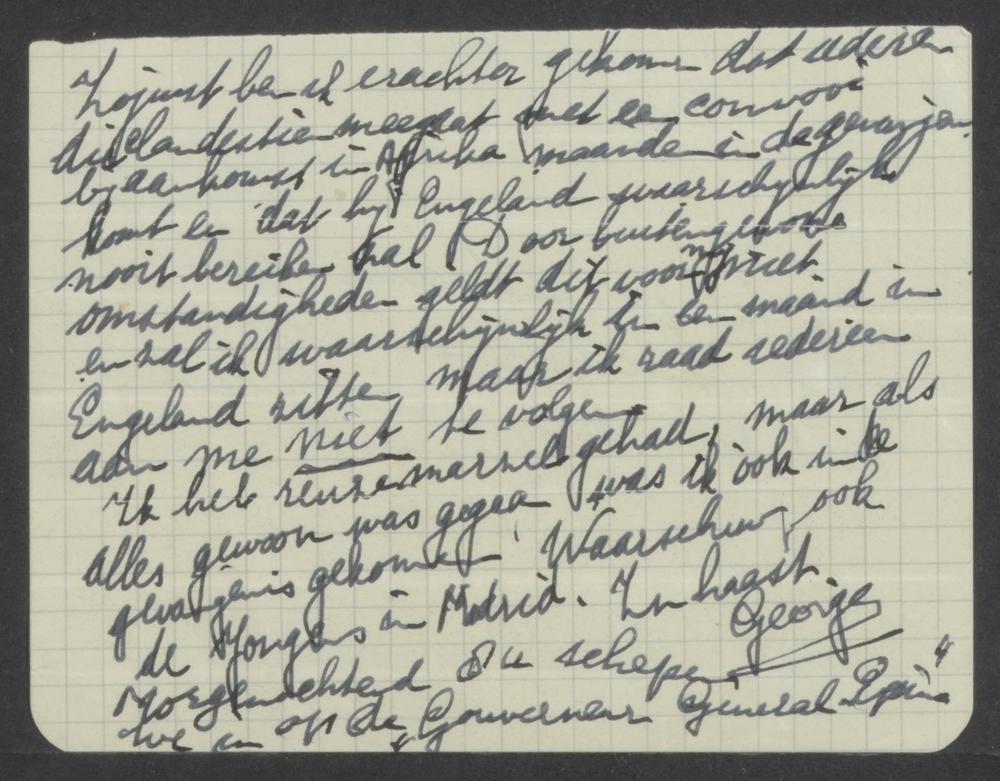 Zojuist ben ik erachter gekomen dat iedereen
die clandestien meegaat met een convooi
bij aankomst in Afrika maanden in de gevangenis
komt en dat hij Engeland waarschijnlijk
nooit bereiken zal. Door buitengewone
omstandigheden geldt dit voor mij niet
en zal ik waarschijnlijk in een maand in
Engeland zitten, maar ik raad iedereen
aan me niet te volgen.
Ik heb reuze marzel gehad, maar als
alles gewoon was gegaan, was ik ook in de
gevangenis gekomen! Waarschuw ook
de Jongens in Madrid. In haast.
George
Morgenochtend 8 u schepen
we in op de „Gouverneur Géneral Lépine"